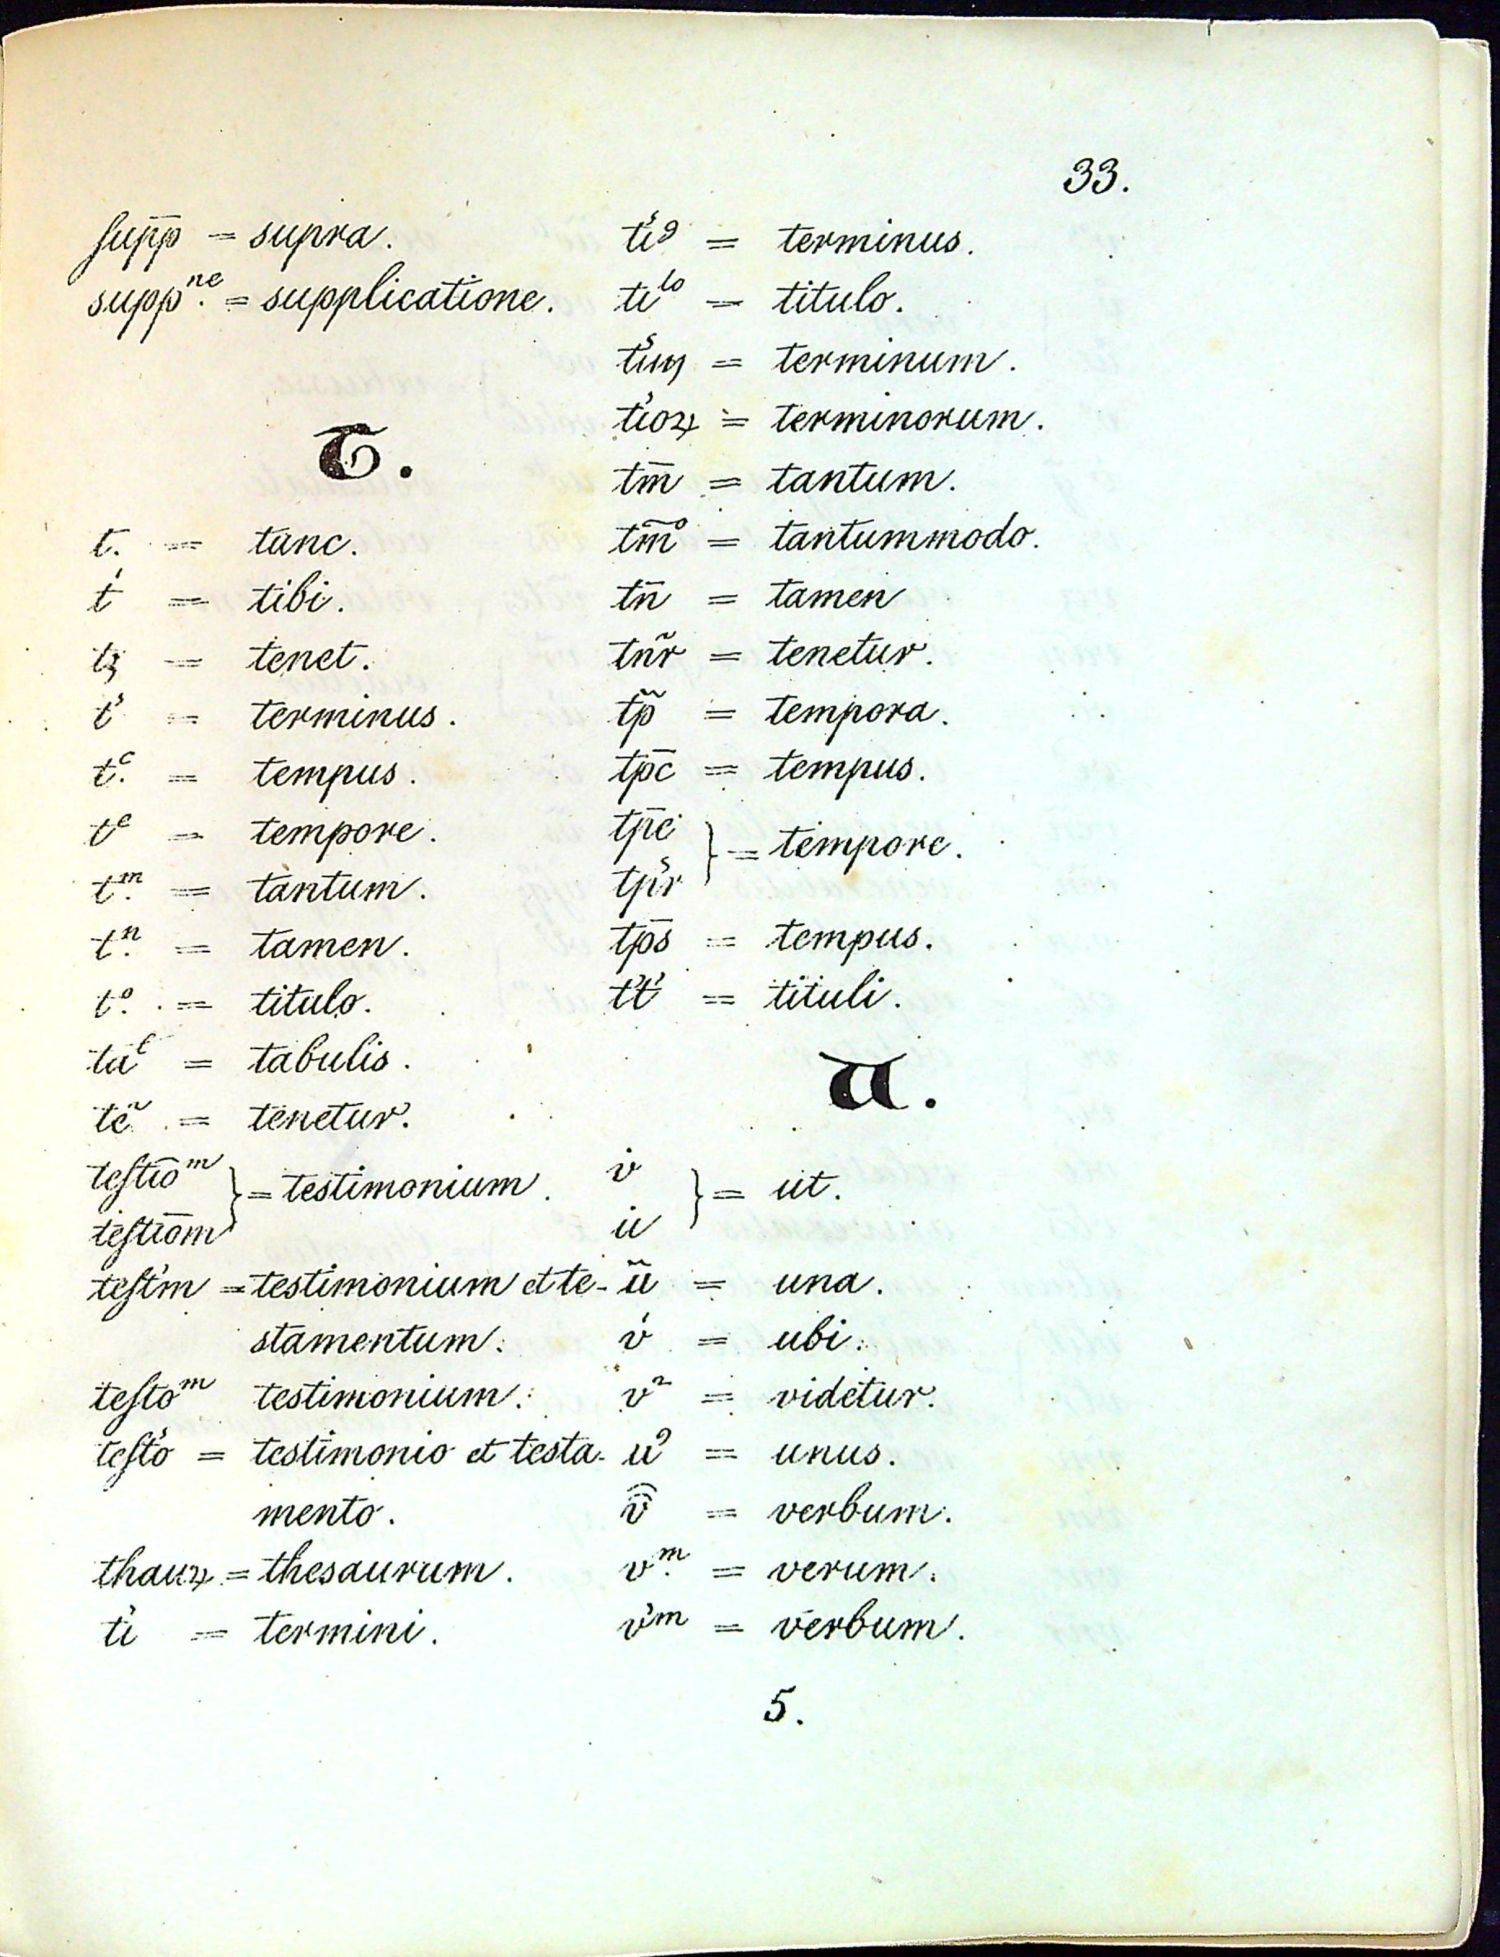 33.
ſup̄p = supra.
supp.ⁿᵉ = supplicatione.
T.
t. = tanc.
t̍ = tibi.
tꝫ = tenet.
t̛ = terminus.
t.ᶜ = tempus.
tᵉ = tempore.
t.ᵐ = tantum.
t.ⁿ = tamen.
t.ᵒ = titulo.
taˡ = tabulis.
te͂ = tenetur.
teſtiōᵐ
teſtiōm } = testimonium.
teſt̍m = testimonium et te-
stamentum.
teſtoᵐ testimonium.
teſt̍o = testimonio et testa-
mento.
thauꝝ = thesaurum.
t̍i = termini.
t̛iꝰ = terminus.
tiˡᵒ = titulo.
t̛iuɱ = terminum.
t̍ioꝝ = terminorum.
tm̄ = tantum.
tm̄ᵒ = tantummodo.
tn̄ = tamen
tn͂r = tenetur.
tp͂ = tempora.
tp̄c = tempus.
tp̄e
tp̛r } = tempore.
tp̄s = tempus.
t̍t̍ = tituli.
U.
v̇
u̇ } = ut.
u͂ = una.
v̍ = ubi.
v² = videtur.
uꝰ = unus.
v̑̈ = verbum.
v.ᵐ = verum.
v̍ᵐ = verbum.
5.